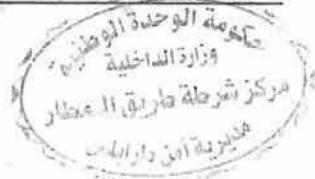 حكومة الوحدة الوطنية
وزارة الداخلية
مركز شرطة طريق المطار
مديرية أمن طرابلس